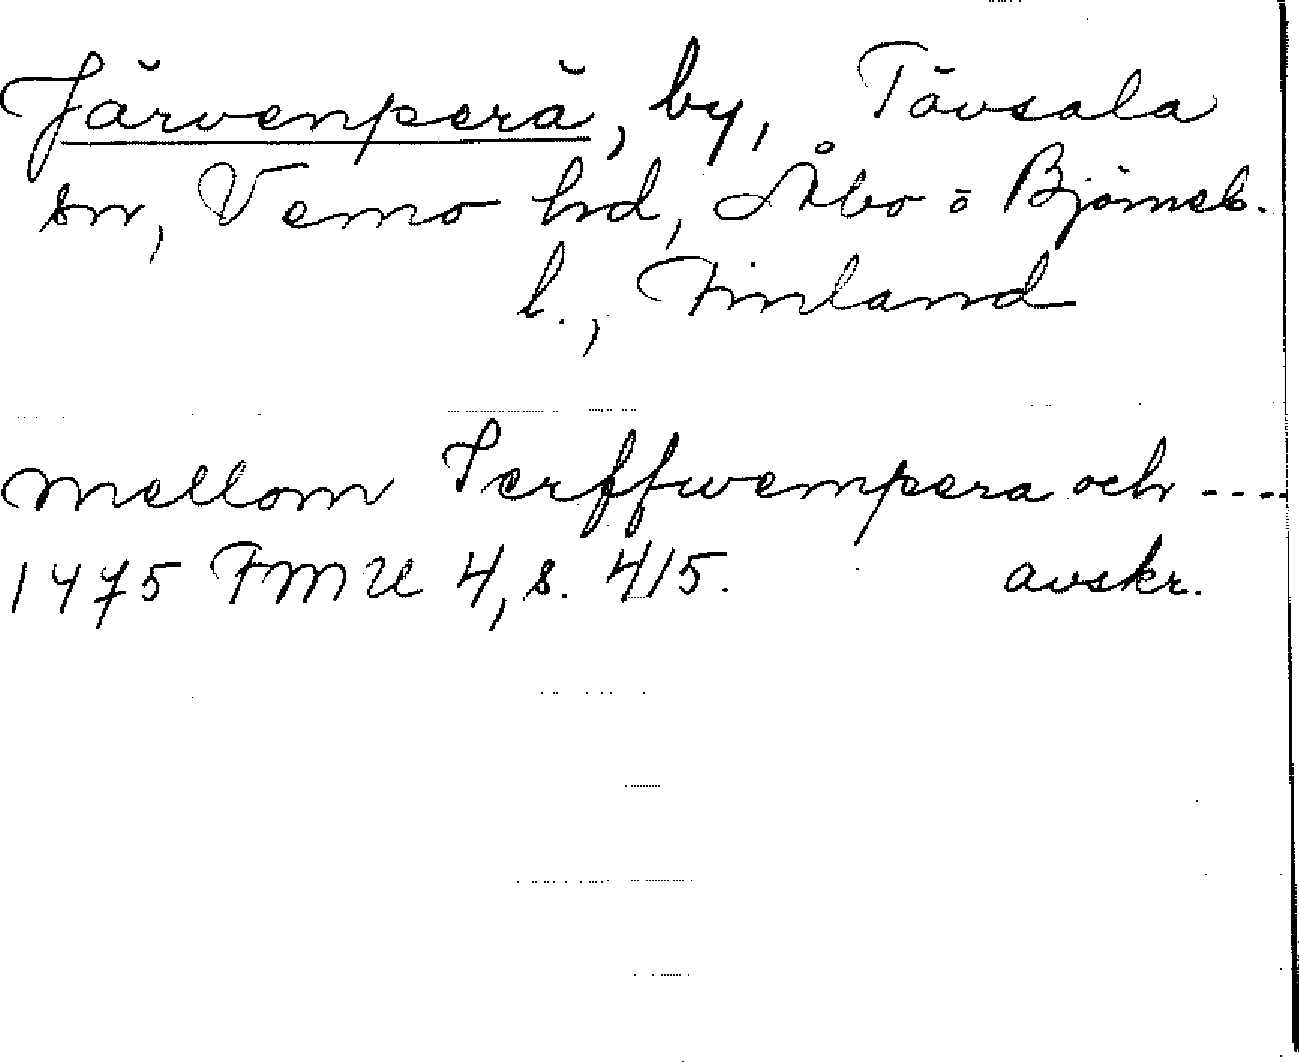 Järvenperä, by, Tövsala
sn, Vemo hd, Åbo o Björneb.
l., Finland
mellom Jerffwenpera och ----
1475 FMU 4, s. 415. avskr.